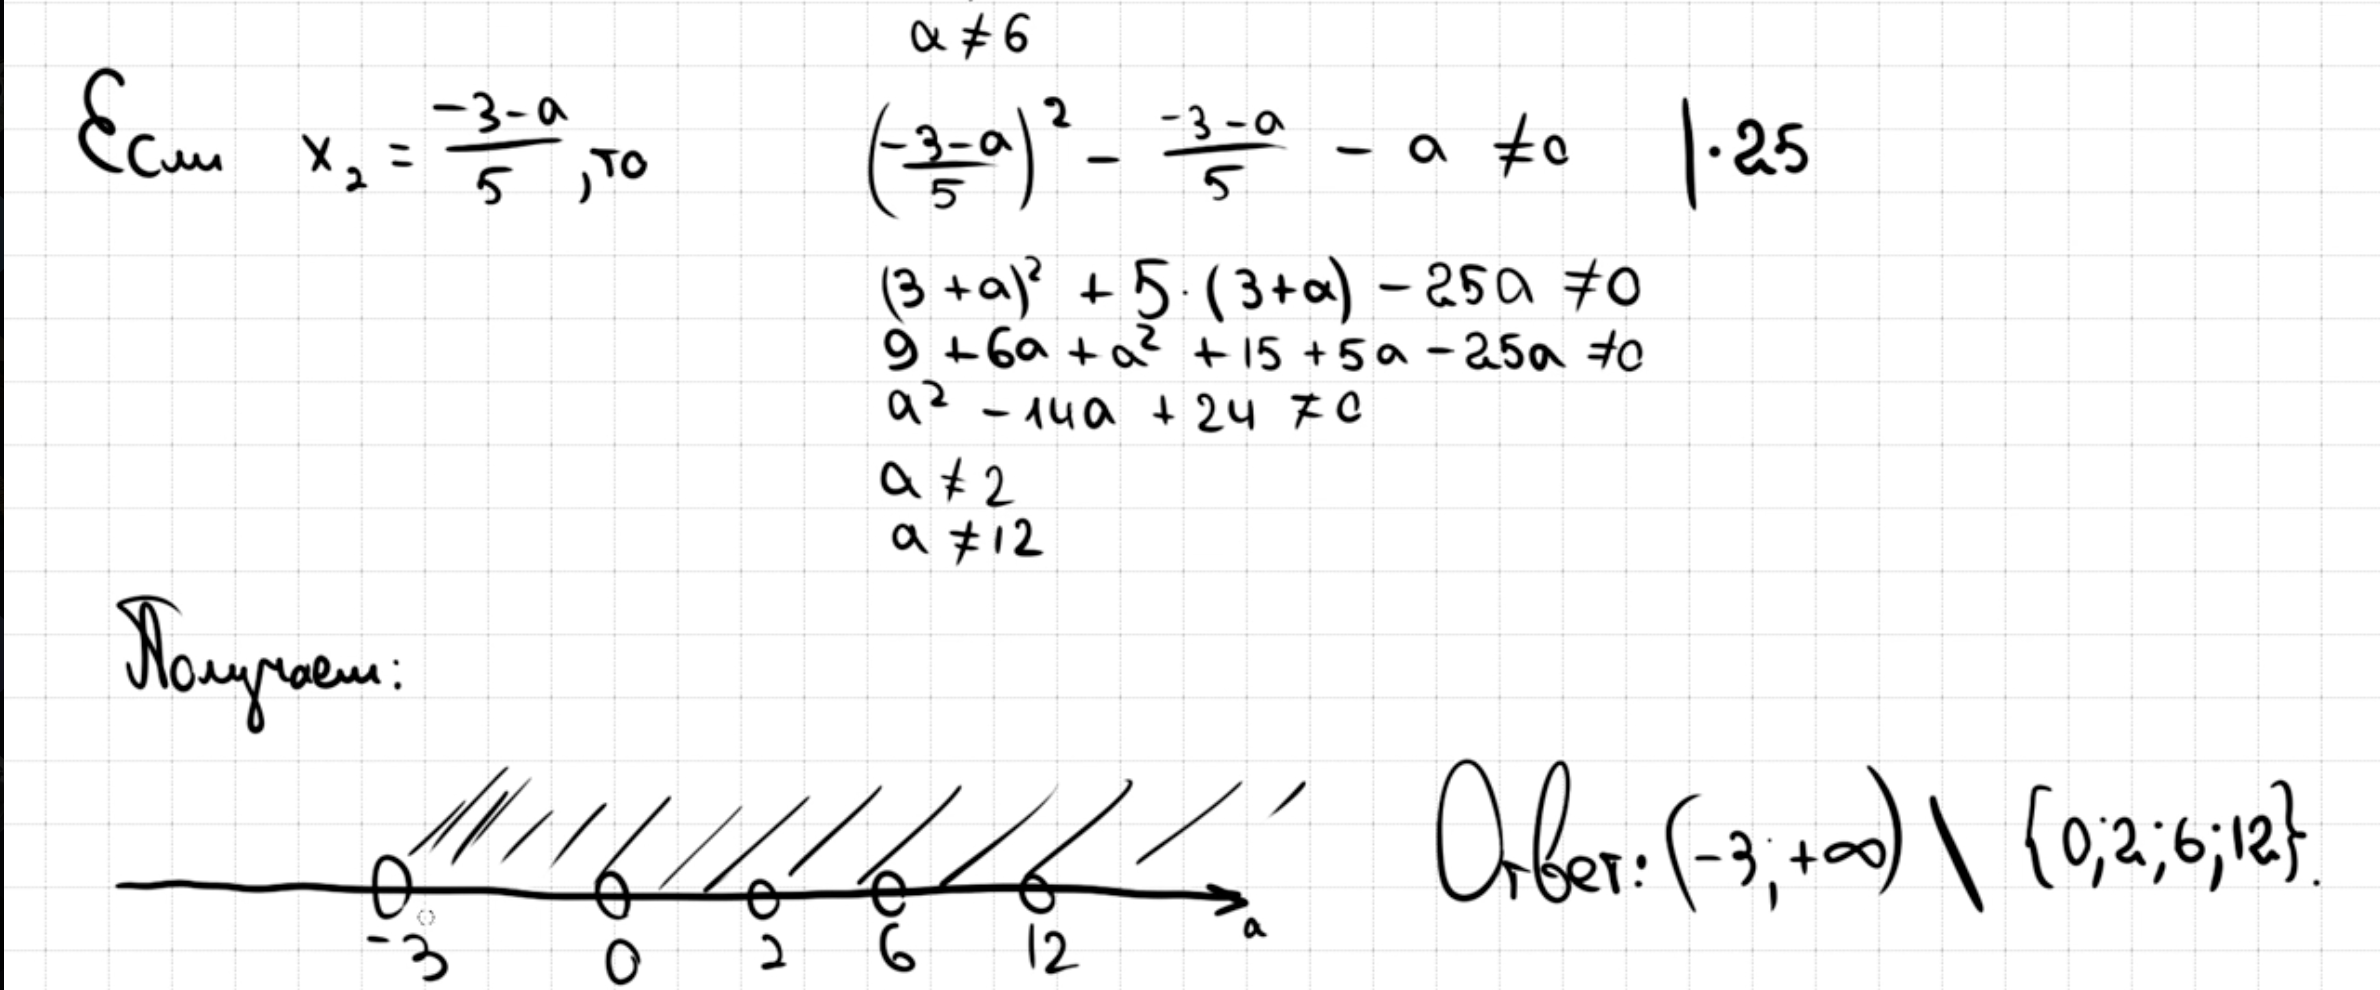 a ≠ 6
Если x₂ = (-3-a)/5, то ((-3-a)/5)² - (-3-a)/5 - a ≠ 0 |·25
(3 + a)² + 5·(3+a) - 25a ≠ 0
9 + 6a + a² + 15 + 5a - 25a ≠ 0
a² - 14a + 24 ≠ 0
a ≠ 2
a ≠ 12
Получаем:
-3 0 2 6 12 a
Ответ: (-3; +∞) \ {0; 2; 6; 12}.